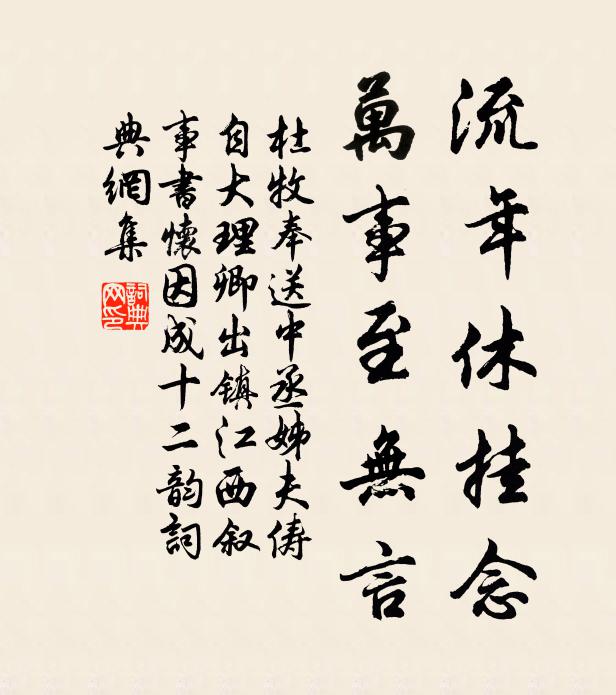 流年休挂念
萬事至無言
杜牧奉送中丞姊夫俦
自大理卿出镇江西叙
事書懷因成十二韵詞
典網集
詞典網印